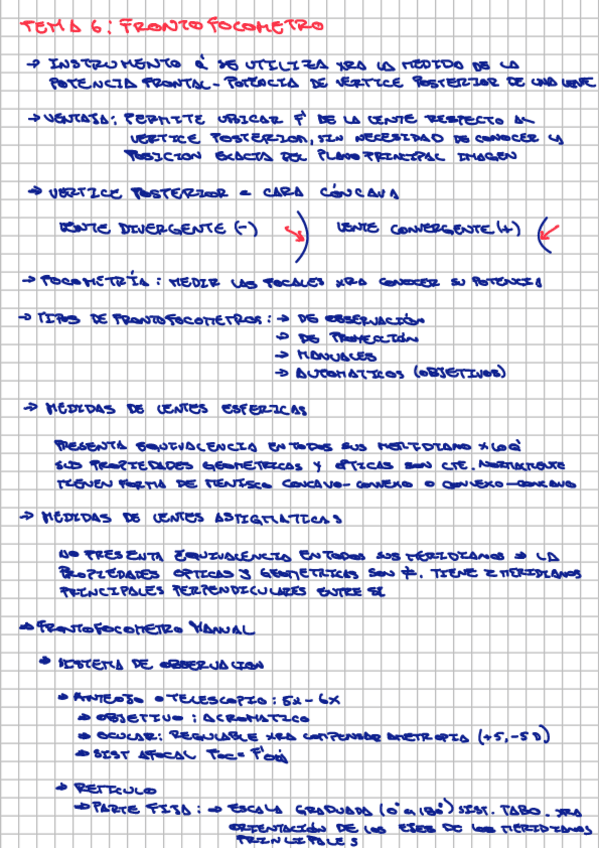 TEMA 6: FRONTOFOCOMETRO
→ INSTRUMENTO Q' SE UTILIZA XRA LA MEDIDO DE LA
POTENCIA FRONTAL - POTENCIA DE VERTICE POSTERIOR DE UNA LENTE
→ VENTAJA: PERMITE UBICAR F' DE LA LENTE RESPECTO AL
VERTICE POSTERIOR, SIN NECESIDAD DE CONOCER LA
POSICION EXACTA DEL PLANO PRINCIPAL IMAGEN
→ VERTICE POSTERIOR = CARA CÓNCAVA
LENTE DIVERGENTE (-) LENTE CONVERGENTE (+)
→ FOCOMETRÍA: MEDIR LAS FOCALES XRA CONOCER SU POTENCIA
→ TIPOS DE FRONTOFOCOMETROS: → DE OBSERVACIÓN
→ DE PROYECCIÓN
→ MANUALES
→ AUTOMATICOS (OBJETIVOS)
→ MEDIDAS DE LENTES ESFERICAS
PRESENTA EQUIVALENCIA EN TODOS SUS MERIDIANO X LO Q'
SUS PROPIEDADES GEOMETRICAS Y OPTICAS SON CTE. NORMALMENTE
TIENEN FORMA DE MENISCO CONCAVO-CONVEXO O CONVEXO-CONCAVO
→ MEDIDAS DE LENTES ASTIGMATICAS
NO PRESENTA EQUIVALENCIA EN TODOS SUS MERIDIANOS → LA
PROPIEDADES OPTICAS Y GEOMETRICAS SON ≠. TIENE 2 MERIDIANOS
PRINCIPALES PERPENDICULARES ENTRE SI
→ FRONTOFOCOMETRO MANUAL
→ SISTEMA DE OBSERVACION
→ ANTEOJO O TELESCOPIO: 5X - 6X
→ OBJETIVO: ACROMATICO
→ OCULAR: REGULABLE XRA COMPENSAR AMETROPIA (+5, -5 D)
→ SIST AFOCAL Foc = F'obj
→ RETICULO
→ PARTE FIJA: → ESCALA GRADUADA (0° a 180°) SIST. TABO. XRA
ORIENTACIÓN DE LOS EJES DE LOS MERIDIANOS
PRINCIPALES